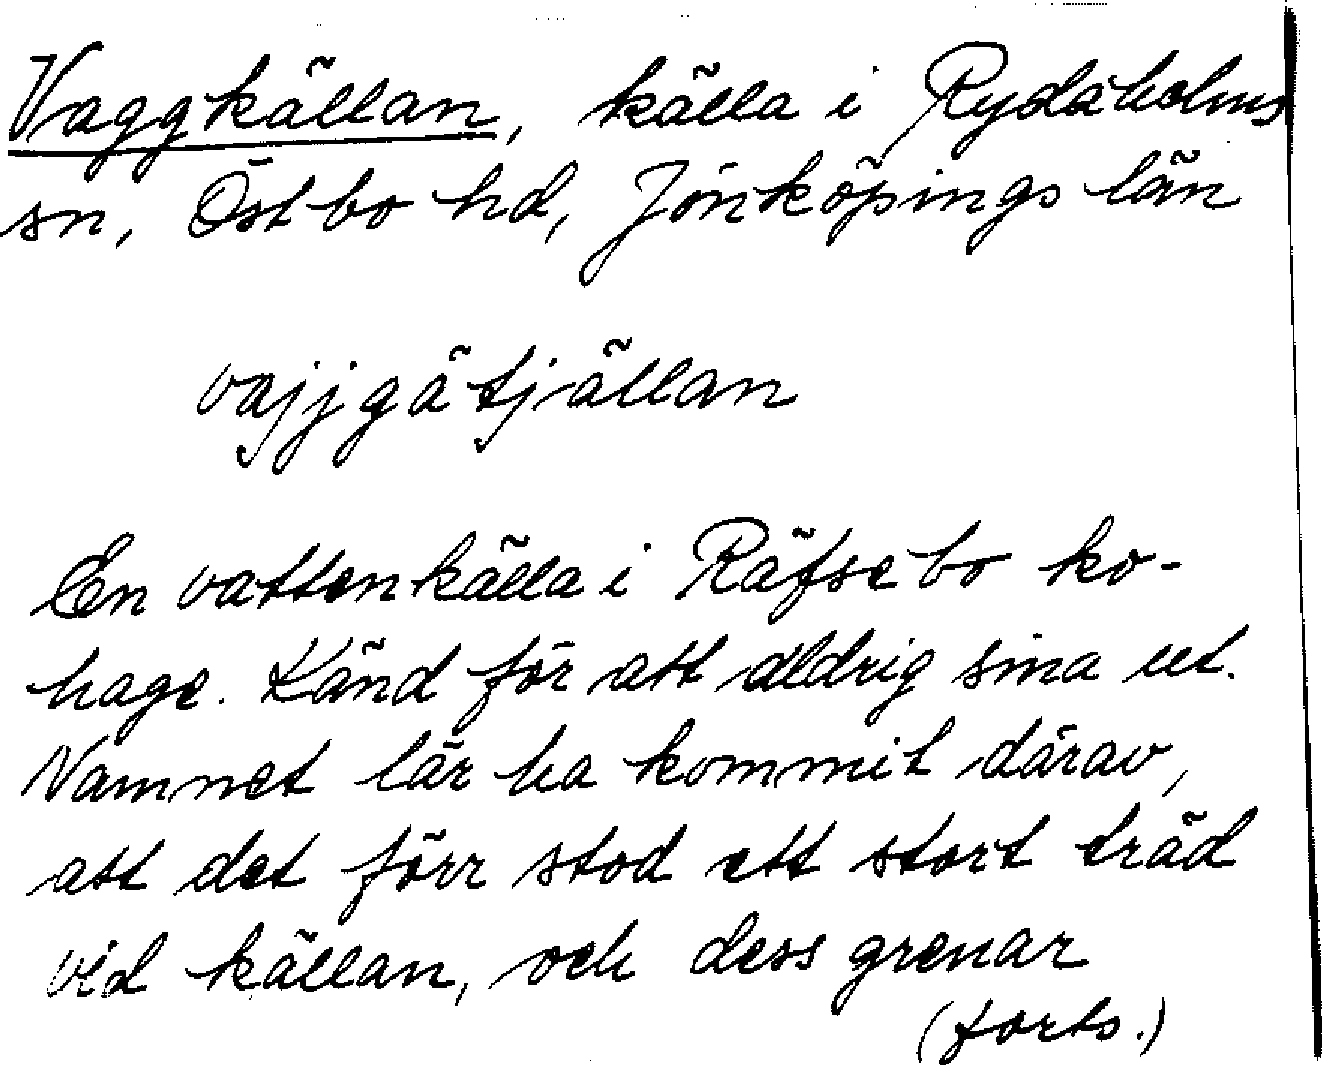 Vaggkällan, källa i Rydaholms
sn, Östbo hd, Jönköpings län
vajjgätjällan
En vattenkälla i Räfsebo ko-
hage. Känd för att aldrig sina ut.
Namnet lär ha kommit därav,
att det förr stod ett stort träd
vid källan, och dess grenar
(forts.)